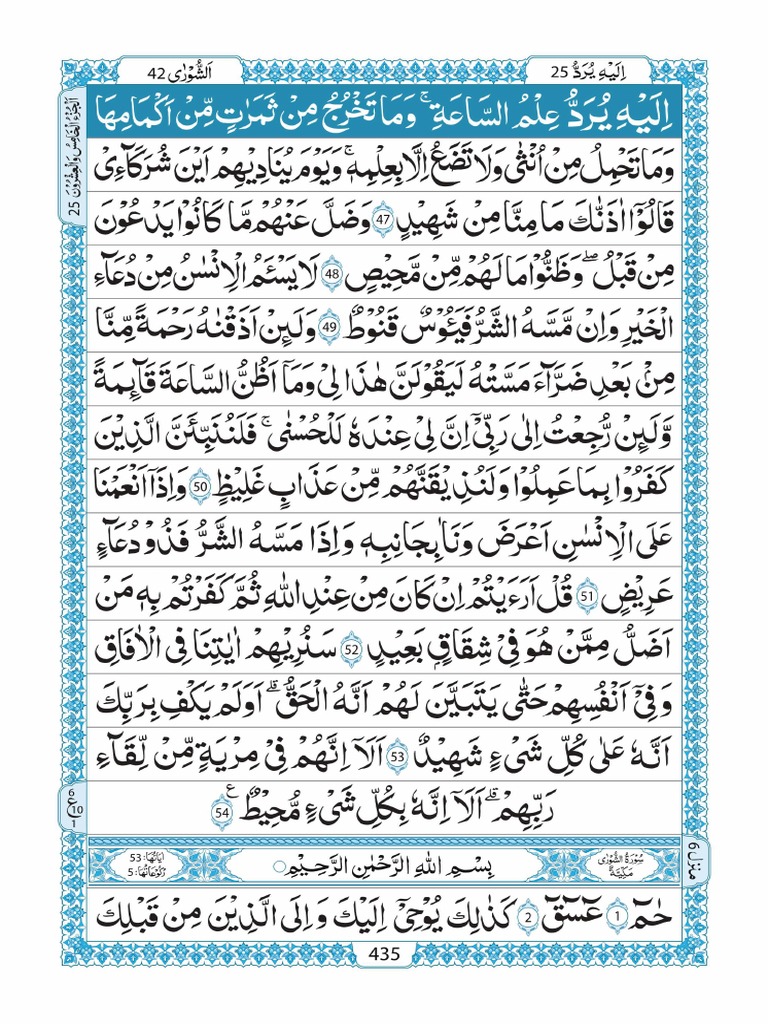 اَلشُّوْرٰى 42
اِلَيْهِ يُرَدُّ 25
اَلْجُزْءُ الْخَامِسُ وَالْعِشْرُوْنَ 25
اِلَيْهِ يُرَدُّ عِلْمُ السَّاعَةِ ؕ وَمَا تَخْرُجُ مِنْ ثَمَرٰتٍ مِّنْ اَكْمَامِهَا
وَمَا تَحْمِلُ مِنْ اُنْثٰى وَلَا تَضَعُ اِلَّا بِعِلْمِهٖ ؕ وَيَوْمَ يُنَادِيْهِمْ اَيْنَ شُرَكَآءِىْ
قَالُوْۤا اٰذَنّٰكَ مَا مِنَّا مِنْ شَهِيْدٍ 47 وَضَلَّ عَنْهُمْ مَّا كَانُوْا يَدْعُوْنَ
مِنْ قَبْلُ وَظَنُّوْا مَا لَهُمْ مِّنْ مَّحِيْصٍ 48 لَا يَسْـَٔمُ الْاِنْسٰنُ مِنْ دُعَآءِ
الْخَيْرِ وَاِنْ مَّسَّهُ الشَّرُّ فَيَـُٔوْسٌ قَنُوْطٌ 49 وَلَئِنْ اَذَقْنٰهُ رَحْمَةً مِّنَّا
مِنْۢ بَعْدِ ضَرَّآءَ مَسَّتْهُ لَيَقُوْلَنَّ هٰذَا لِىْ وَمَاۤ اَظُنُّ السَّاعَةَ قَآئِمَةً
وَّلَئِنْ رُّجِعْتُ اِلٰى رَبِّىْۤ اِنَّ لِىْ عِنْدَهٗ لَلْحُسْنٰى ۚ فَلَنُنَبِّئَنَّ الَّذِيْنَ
كَفَرُوْا بِمَا عَمِلُوْا وَلَنُذِيْقَنَّهُمْ مِّنْ عَذَابٍ غَلِيْظٍ 50 وَاِذَاۤ اَنْعَمْنَا
عَلَى الْاِنْسٰنِ اَعْرَضَ وَنَاٰ بِجَانِبِهٖ وَاِذَا مَسَّهُ الشَّرُّ فَذُوْ دُعَآءٍ
عَرِيْضٍ 51 قُلْ اَرَءَيْتُمْ اِنْ كَانَ مِنْ عِنْدِ اللّٰهِ ثُمَّ كَفَرْتُمْ بِهٖ مَنْ
اَضَلُّ مِمَّنْ هُوَ فِىْ شِقَاقٍۭ بَعِيْدٍ 52 سَنُرِيْهِمْ اٰيٰتِنَا فِى الْاٰفَاقِ
وَفِىْۤ اَنْفُسِهِمْ حَتّٰى يَتَبَيَّنَ لَهُمْ اَنَّهُ الْحَقُّ ؕ اَوَلَمْ يَكْفِ بِرَبِّكَ
اَنَّهٗ عَلٰى كُلِّ شَىْءٍ شَهِيْدٌ 53 اَلَاۤ اِنَّهُمْ فِىْ مِرْيَةٍ مِّنْ لِّقَآءِ
رَبِّهِمْ ؕ اَلَاۤ اِنَّهٗ بِكُلِّ شَىْءٍ مُّحِيْطٌ 54 ع
منزل 6
سُوْرَةُ الشُّوْرٰى
مَكِّيَّةٌ
بِسْمِ اللّٰهِ الرَّحْمٰنِ الرَّحِيْمِ
اٰيَاتُهَا: 53
رُكُوْعَاتُهَا: 5
حٰمٓ 1 عٓسٓقٓ 2 كَذٰلِكَ يُوْحِىْۤ اِلَيْكَ وَاِلَى الَّذِيْنَ مِنْ قَبْلِكَ
435